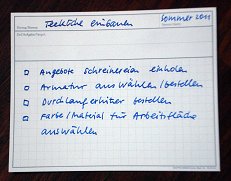 Teeküche einbauen
Sommer 2011
Angebote Schreinereien einholen
Armatur auswählen/bestellen
Durchlauferhitzer bestellen
Farbe/Material für Arbeitsfläche
auswählen